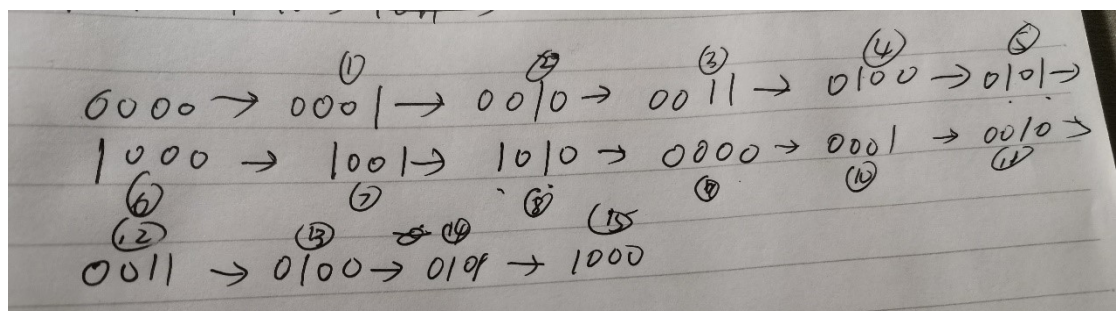 ① ② ③ ④ ⑤
0000 → 0001 → 0010 → 0011 → 0100 → 0101 →
1000 → 1001 → 1010 → 0000 → 0001 → 0010 →
⑥ ⑦ ⑧ ⑨ ⑩ ⑪
⑫ ⑬ ⑭ ⑮
0011 → 0100 → 0101 → 1000